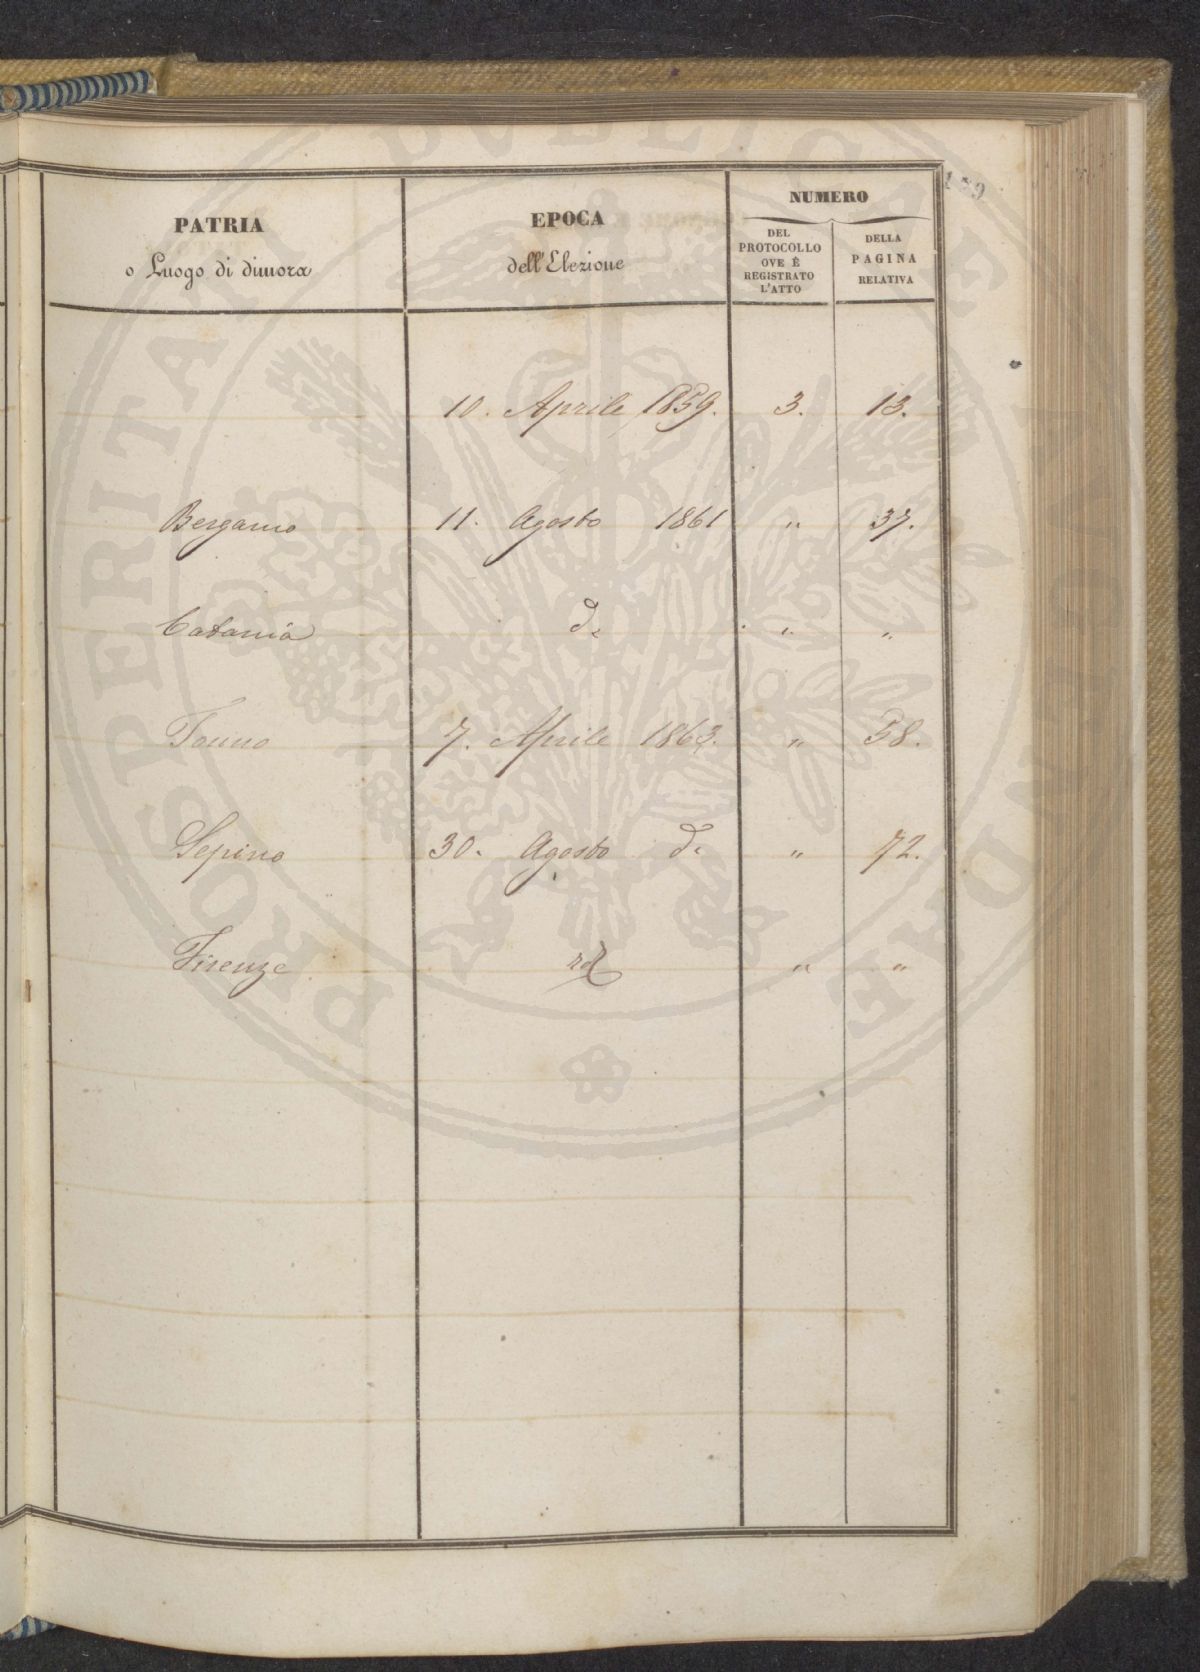 159
PATRIA
o Luogo di dimora
EPOCA
dell'Elezione
NUMERO
DEL
PROTOCOLLO
OVE È
REGISTRATO
L'ATTO
DELLA
PAGINA
RELATIVA
10. Aprile 1859. 3. 13.
Bergamo 11. Agosto 1861 " 37.
Catania d. " "
Torino 7. Aprile 1863. " 58.
Sepino 30. Agosto d. " 72.
Firenze " "
PROSPERITATI PUBLICAE AUGENDAE